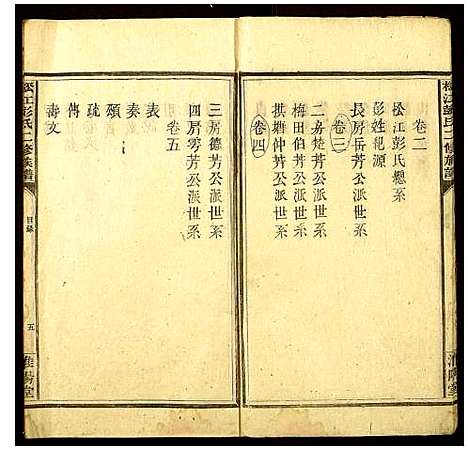 松江彭氏二修族譜
卷二
松江彭氏總系
彭姓起源
長房岳芳公派世系
卷三
二房楚芳公派世系
梅田伯芳公派世系
仲芳公派世系
卷四
三房德芳公派世系
四房雩芳公派世系
卷五
表
奏
頌
疏
傳
壽文
松江彭氏二修族譜
目錄
五
淮陽堂